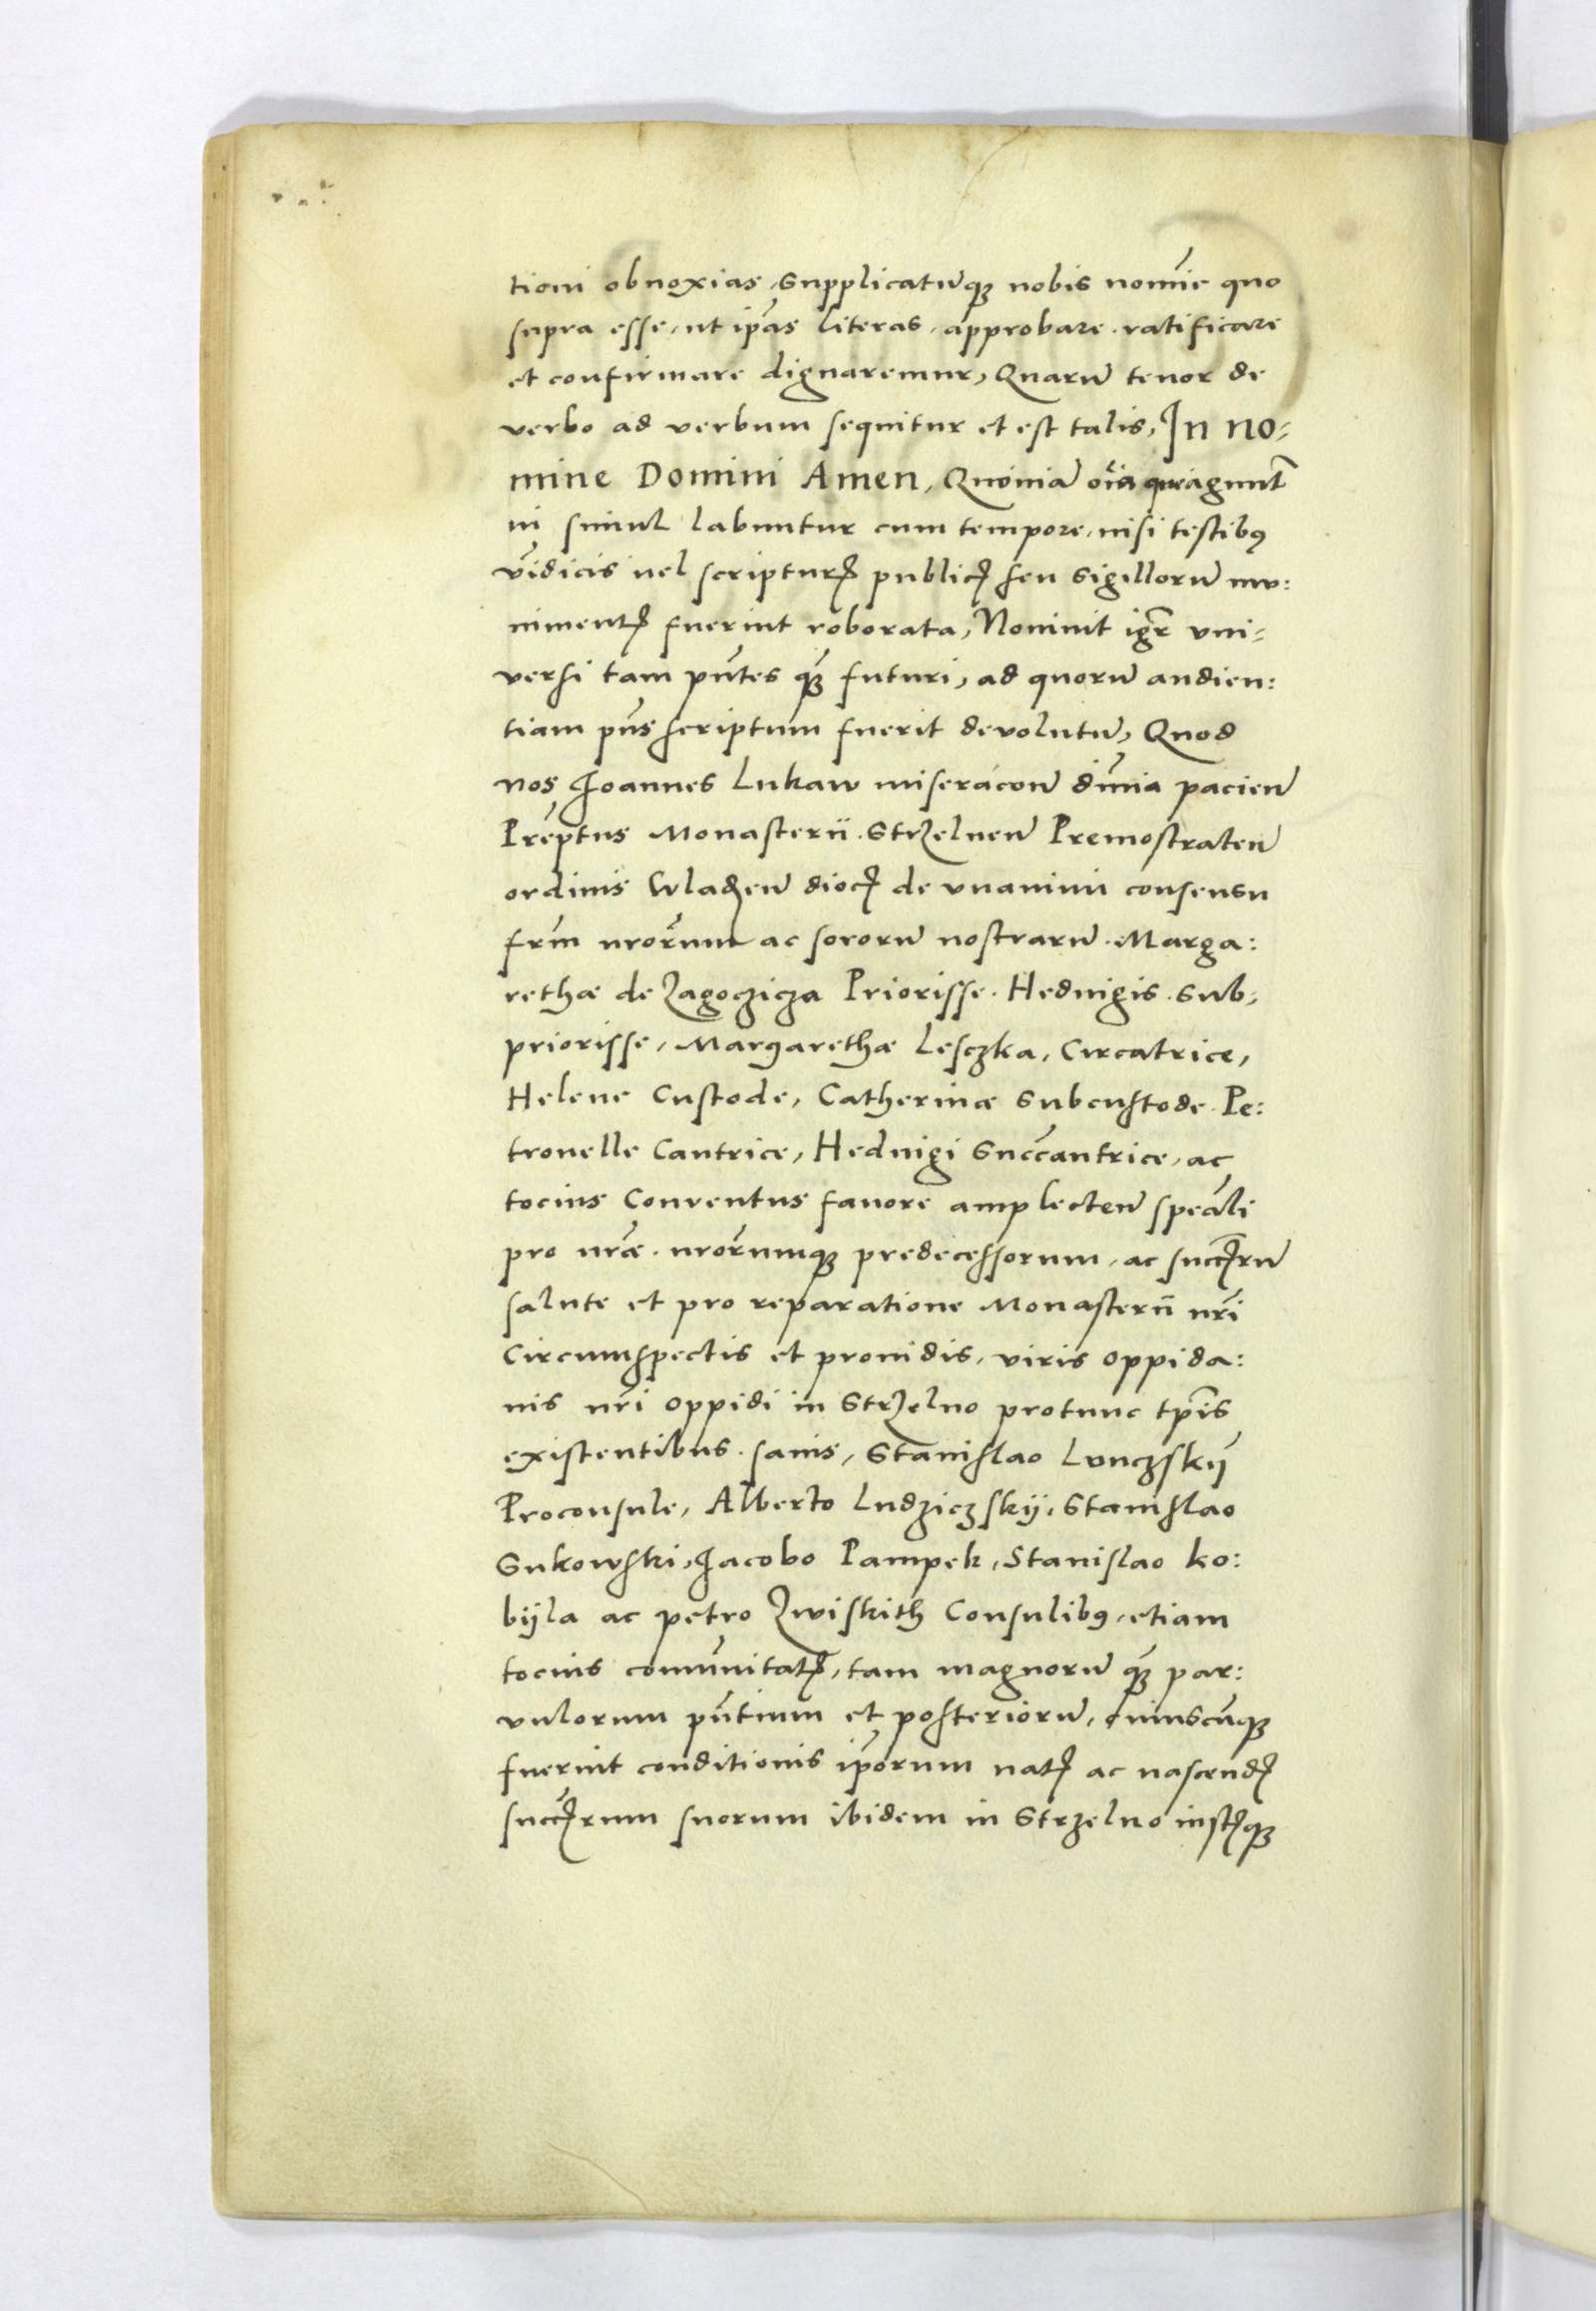 tioni obnoxias, supplicatūq₃ nobis noīe quo
supra esse, ut ip̄as literas, approbare, ratificare
et confirmare dignaremur, Quarū tenor de
verbo ad verbum sequitur et est talis, In no-
mine Domini Amen, Quoniā oīa quæ agunt̄
ui simul labuntur cum tempore, nisi testibꝰ
v̄idicis uel scripturꝭ publicꝭ seu sigillorū mu:
nimentꝭ fuerint roborata, Nouint igr̄ vni-
versi tam pn̄tes q̄₃ futuri, ad quorū audien:
tiam pn̄s scriptum fuerit devolutū, Quod
nos Joannes Lukaw miseracōn̄ diuīa pacien̄
Prep̄tus Monasterii Strzelnen̄ Premostraten̄
ordinis Wladzen̄ diocꝭ de vnanimi consensu
frm̄ nror̄um ac sororū nostrarū. Marga:
rethæ de Zagoczicza Priorisse. Heduigis. Sub-
priorisse, Margarethæ Lesczka, Circatrice,
Helene Custode, Catherinæ Subcustode. Pe:
tronelle Cantrice, Heduigi Succ̄antrice, ac
tocius Conventus fauore amplecten̄ spec̄ali
pro nr̄æ. nror̄umq₃ predecessorum, ac succꝭrū
salute et pro reparatione Monasterii nr̄i
Circumspectis et prouidis, viris oppida:
nis nr̄i oppidi in Strzelno protunc tp̄is
existentibus. sanis, Stanislao Lunczskÿ
Proconsule, Alberto Ludziczskÿ, Stanislao
Sukowski, Jacobo Pampek, Stanislao Ko:
bÿla ac petro Zwiskith Consulibꝰ, etiam
tocius comūnitatꝭ, tam magnorū q̄₃ par:
vulorum pn̄tium et posteriorū, cuiuscūq₃
fuerint conditionis ip̄orum natꝭ ac nascendꝭ
succꝭrum suorum ibidem in Strzelno instꝭq₃